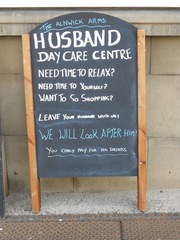 THE ALNWICK ARMS
HUSBAND
DAY CARE CENTRE
NEED TIME TO RELAX?
NEED TIME TO YOURSELF?
WANT TO GO SHOPPING?
LEAVE YOUR HUSBAND WITH US!
WE WILL LOOK AFTER HIM!
YOU ONLY PAY FOR HIS DRINKS